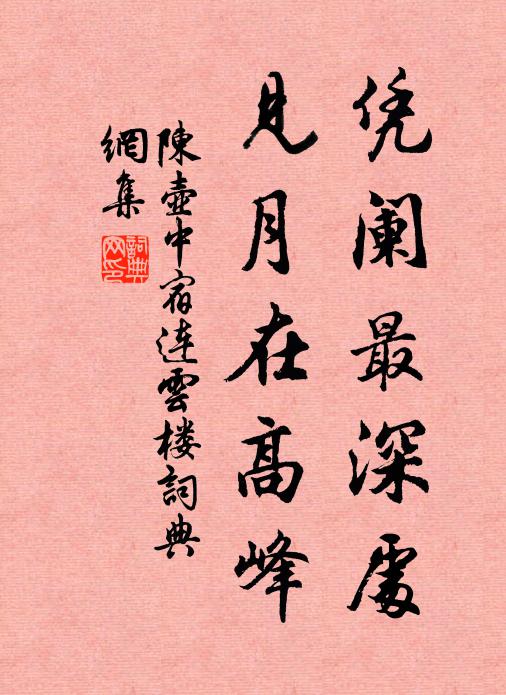 凭阑最深處
見月在高峰
陳壺中宿連雲楼詞典
網集
詞典网印